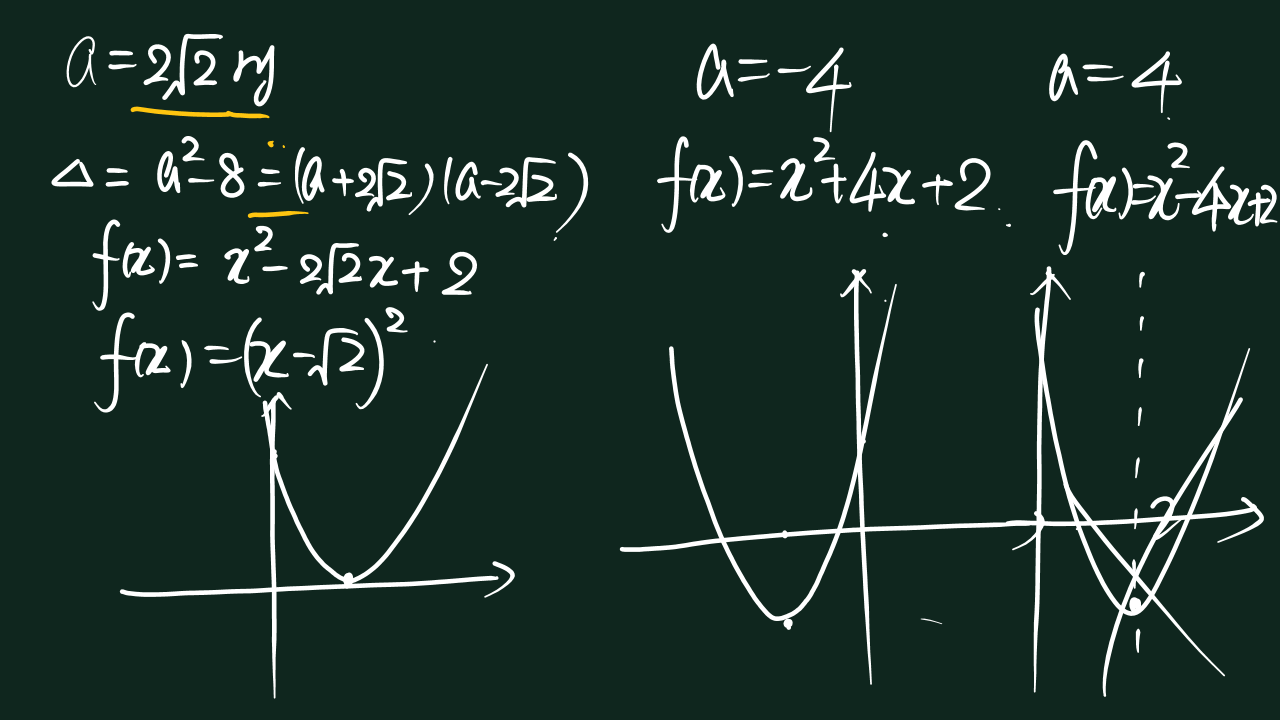 a = 2√2 यदृ
Δ = a² - 8 = (a + 2√2)(a - 2√2)
f(x) = x² - 2√2x + 2
f(x) = (x - √2)²
a = -4
f(x) = x² + 4x + 2
a = 4
f(x) = x² - 4x + 2
2